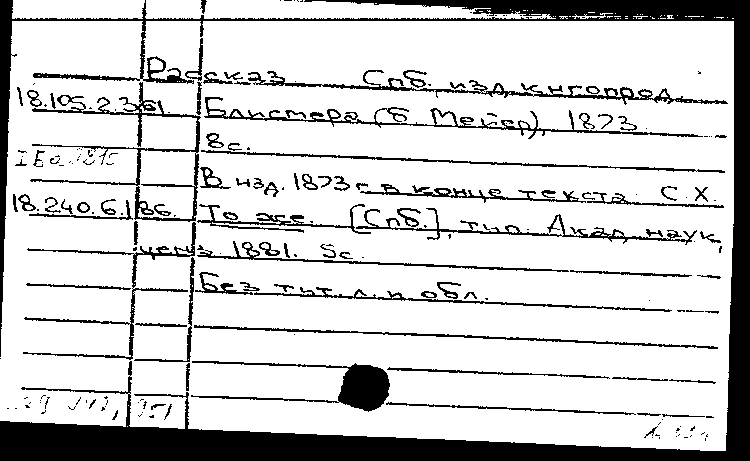 Рассказ Спб, изд. кнгопрод.
18.105.2.361 Блистера (б. Мейер), 1873
8с.
В изд. 1873 г. в конце текста: С.Х.
18.240.6.186. То же. [Спб.], тип. Акад. наук,
ценз 1881. 5с.
Без тит. л. и обл.